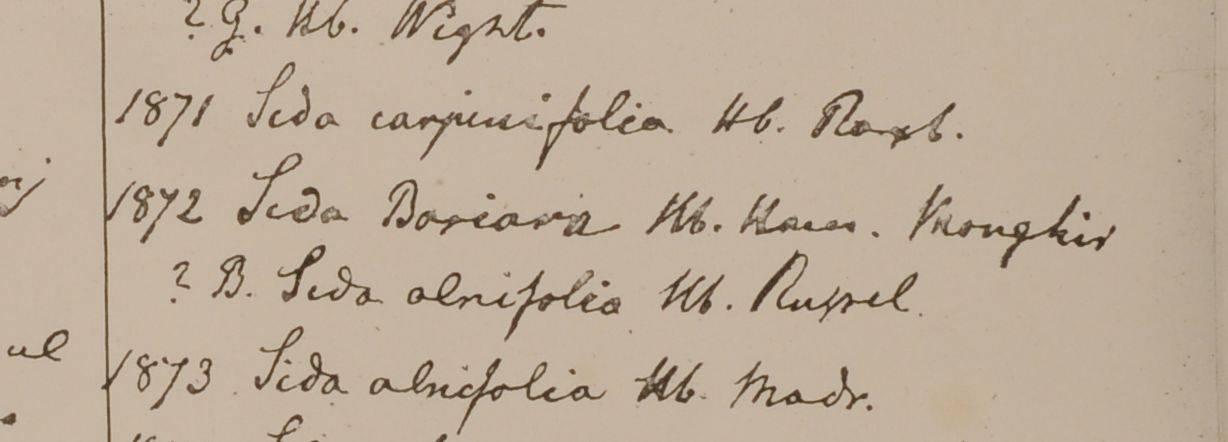 ? G. Hb. Wight.
1871 Sida carpinifolia Hb. Roxb.
1872 Sida Bariara Hb. Ham. Monghir
? B. Sida alnifolia Hb. Russel
ul
1873 Sida alnifolia Hb. Madr.